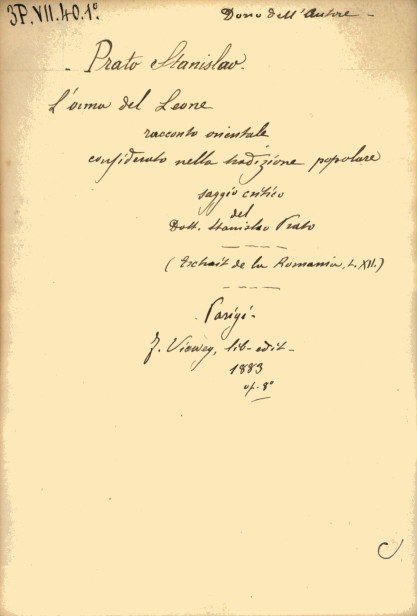 3P.VII.40.1º
Dono dell'Autore -
- Prato Stanislao.
L'orma del Leone
racconto orientale
considerato nella tradizione popolare
saggio critico
del
Dott. Stanislao Prato
(Extrait de la Romania, t. XII.)
- Parigi -
F. Vieweg, lib-edit-
1883
op. 8º